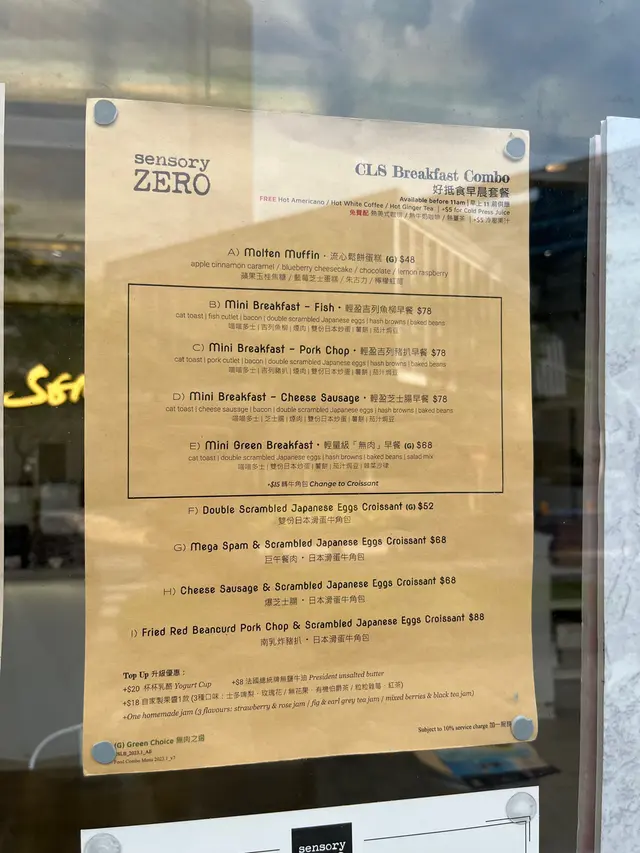 sensory
ZERO
CLS Breakfast Combo
好抵食早晨套餐
Available before 11am | 早上 11 前供應
FREE Hot Americano / Hot White Coffee / Hot Ginger Tea | +$5 for Cold Press Juice
免費配 熱美式咖啡 / 熱牛奶咖啡 / 熱薑茶 | +$5 冷壓果汁
A) Molten Muffin · 流心鬆餅蛋糕 (G) $48
apple cinnamon caramel / blueberry cheesecake / chocolate / lemon raspberry
蘋果玉桂焦糖 / 藍莓芝士蛋糕 / 朱古力 / 檸檬紅莓
B) Mini Breakfast – Fish · 輕盈吉列魚柳早餐 $78
cat toast | fish cutlet | bacon | double scrambled Japanese eggs | hash browns | baked beans
喵喵多士 | 吉列魚柳 | 煙肉 | 雙份日本炒蛋 | 薯餅 | 茄汁焗豆
C) Mini Breakfast – Pork Chop · 輕盈吉列豬扒早餐 $78
cat toast | pork cutlet | bacon | double scrambled Japanese eggs | hash browns | baked beans
喵喵多士 | 吉列豬扒 | 煙肉 | 雙份日本炒蛋 | 薯餅 | 茄汁焗豆
D) Mini Breakfast – Cheese Sausage · 輕盈芝士腸早餐 $78
cat toast | cheese sausage | bacon | double scrambled Japanese eggs | hash browns | baked beans
喵喵多士 | 芝士腸 | 煙肉 | 雙份日本炒蛋 | 薯餅 | 茄汁焗豆
E) Mini Green Breakfast · 輕量級「無肉」早餐 (G) $68
cat toast | double scrambled Japanese eggs | hash browns | baked beans | salad mix
喵喵多士 | 雙份日本炒蛋 | 薯餅 | 茄汁焗豆 | 雜菜沙律
+$15 轉牛角包 Change to Croissant
F) Double Scrambled Japanese Eggs Croissant (G) $52
雙份日本滑蛋牛角包
G) Mega Spam & Scrambled Japanese Eggs Croissant $68
巨午餐肉 · 日本滑蛋牛角包
H) Cheese Sausage & Scrambled Japanese Eggs Croissant $68
爆芝士腸 · 日本滑蛋牛角包
I) Fried Red Beancurd Pork Chop & Scrambled Japanese Eggs Croissant $88
南乳炸豬扒 · 日本滑蛋牛角包
Top Up 升級優惠：
+$20 杯杯乳酪 Yogurt Cup +$8 法國總統牌無鹽牛油 President unsalted butter
+$18 自家製果醬1款 (3種口味：士多啤梨、玫瑰花 / 無花果、有機伯爵茶 / 粒粒雜莓、紅茶)
+One homemade jam (3 flavours: strawberry & rose jam / fig & earl grey tea jam / mixed berries & black tea jam)
(G) Green Choice 無肉之選
Subject to 10% service charge 加一服務
Food Combo Menu 2023.1_v7
sensory